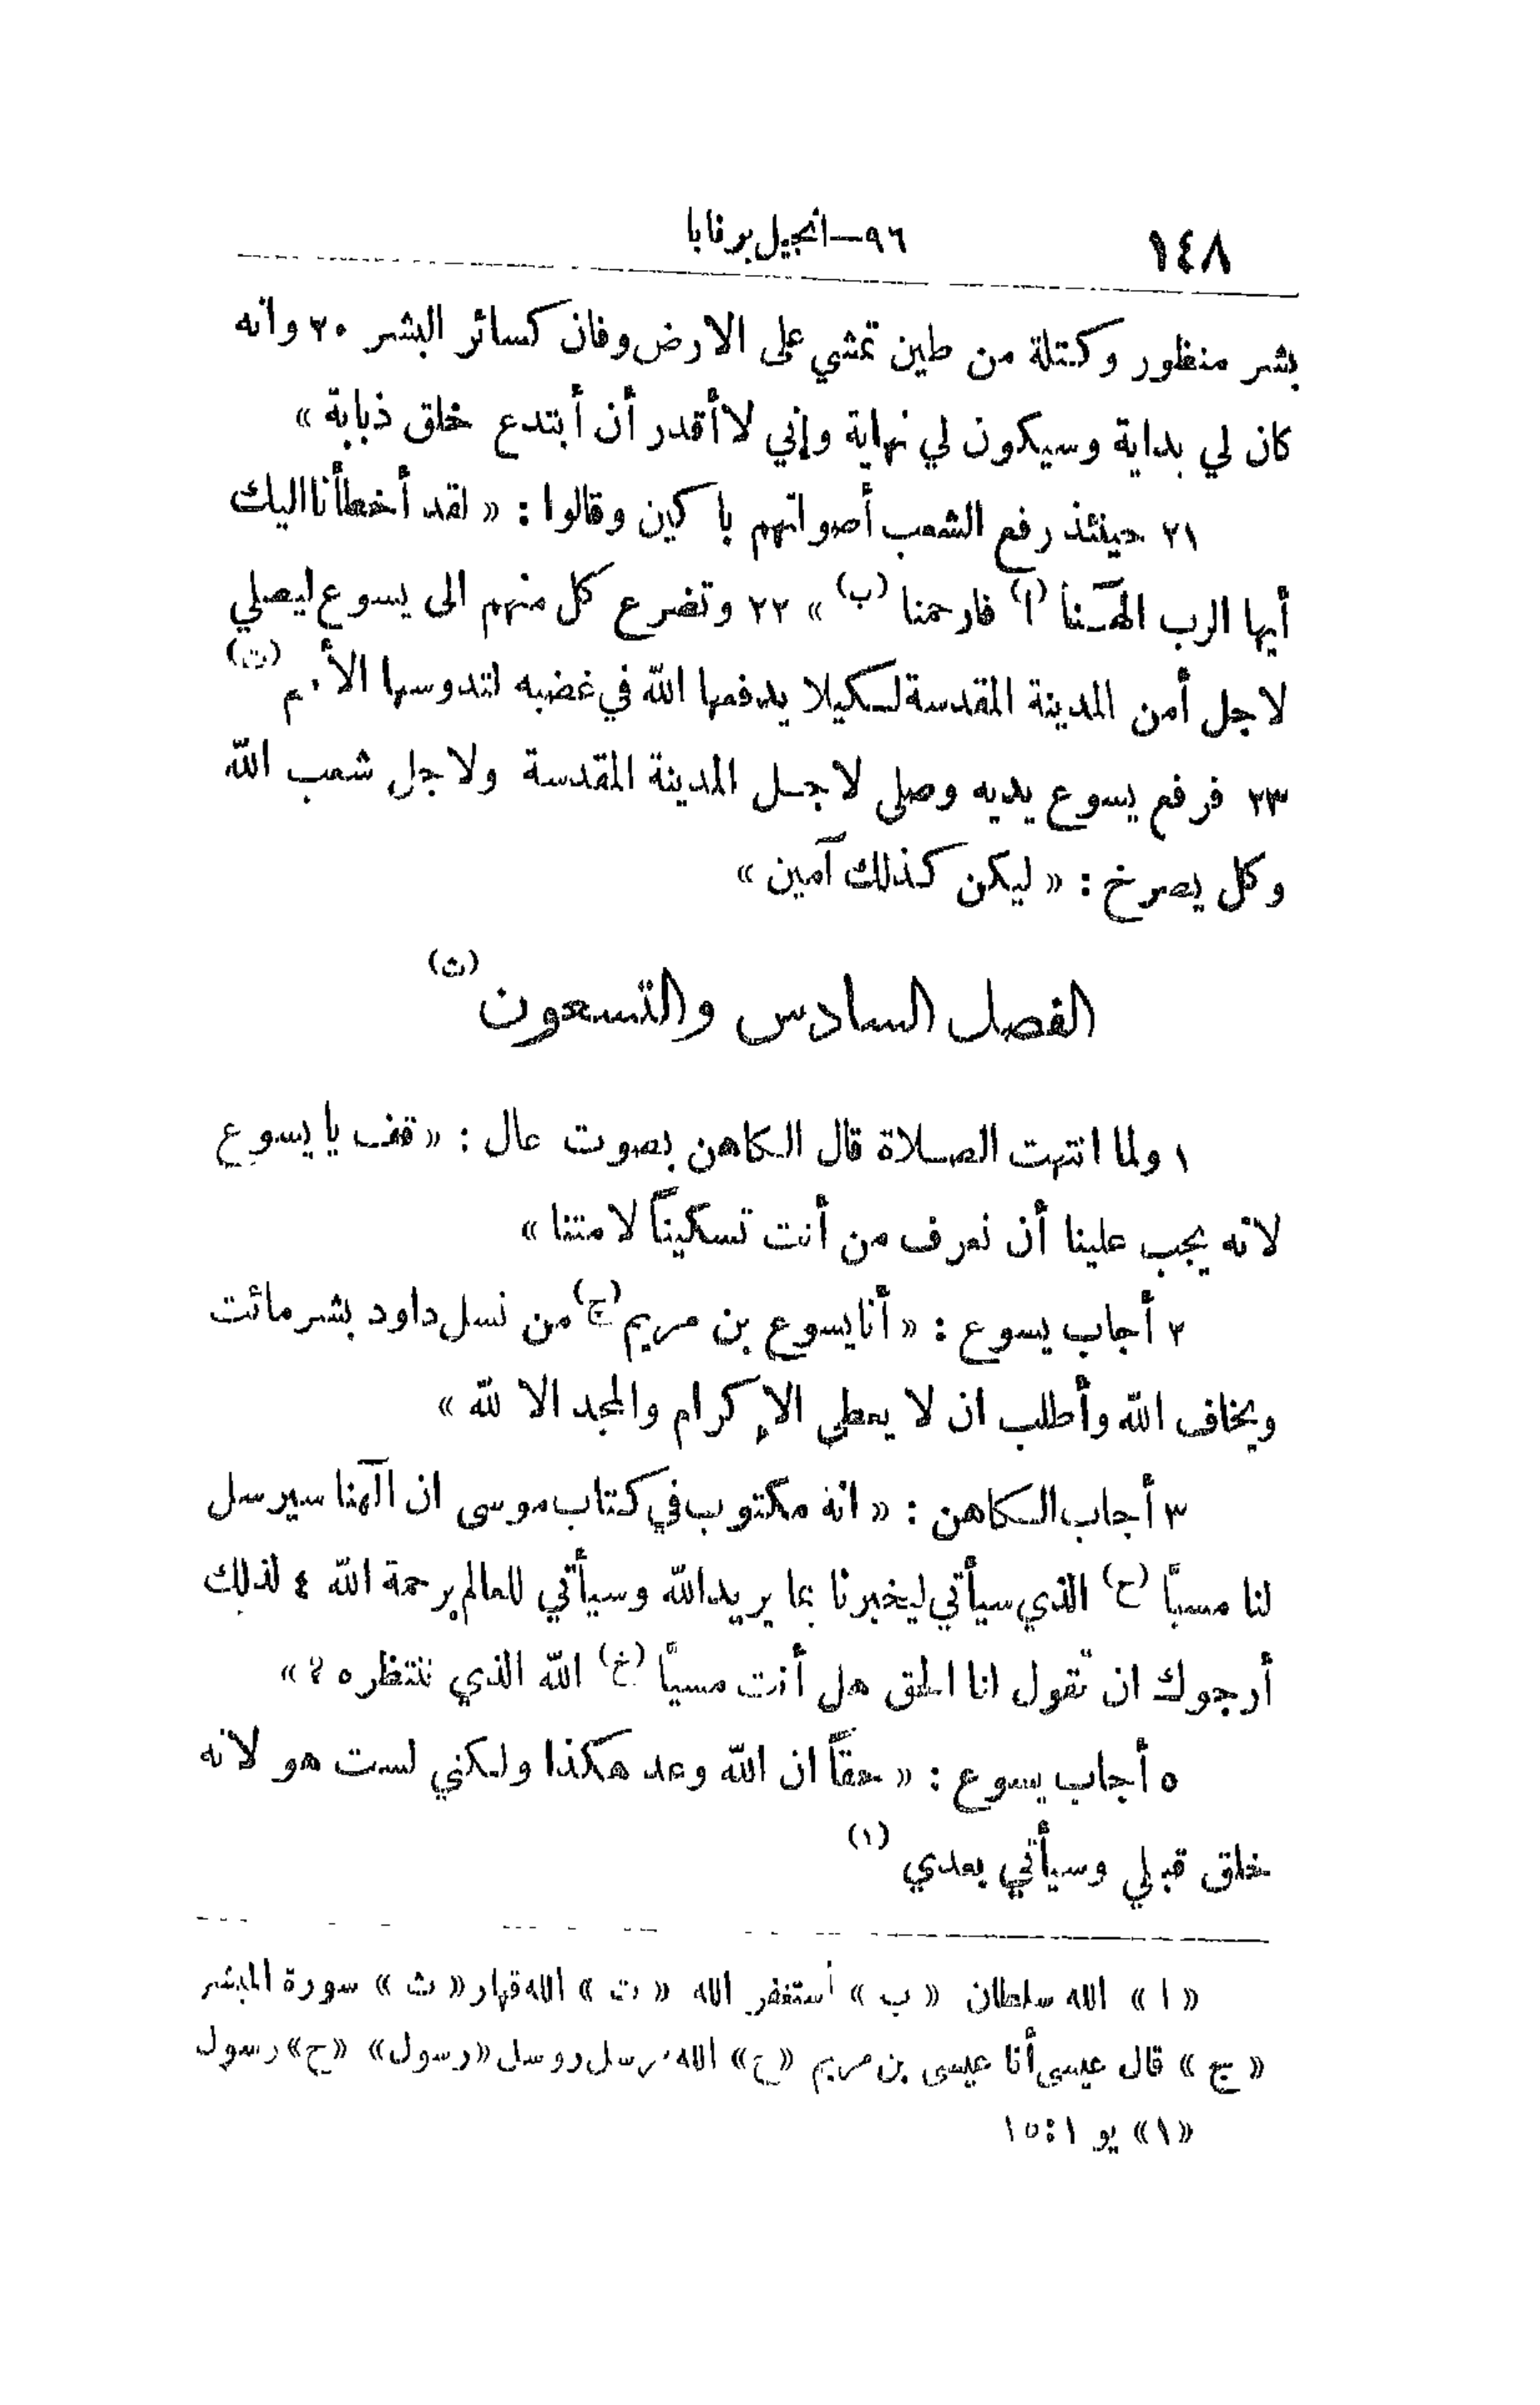 ١٤٨ ٩٦—انجيل برنابا
بشر منظور وكتلة من طين تمشي على الارض وفان كسائر البشر ٢٠ وانه
كان لي بداية وسيكون لي نهاية وإني لا أقدر أن أبتدع خلق ذبابة »
٢١ حينئذ رفع الشعب أصواتهم باكين وقالوا : « لقد أخطأنا اليك
أيها الرب الهنا (ا) فارحمنا (ب) » ٢٢ وتضرع كل منهم الى يسوع ليصلي
لاجل أمن المدينة المقدسة لكيلا يدفعها الله في غضبه لتدوسها الأمم (ت)
٢٣ فرفع يسوع يديه وصلى لاجل المدينة المقدسة ولاجل شعب الله
وكل يصرخ : « ليكن كذلك آمين »
الفصل السادس والتسعون (ث)
١ ولما انتهت الصلاة قال الكاهن بصوت عال : « قف يا يسوع
لانه يجب علينا أن نعرف من أنت تسكيناً لامتنا »
٢ أجاب يسوع : « أنا يسوع بن مريم (ج) من نسل داود بشر مائت
ويخاف الله وأطلب ان لا يعطى الإكرام والمجد الا لله »
٣ أجاب الكاهن : « انه مكتوب في كتاب موسى ان الهنا سيرسل
لنا مسيّا (ح) الذي سيأتي ليخبرنا بما يريد الله وسيأتي للعالم برحمة الله ٤ لذلك
أرجوك ان تقول لنا الحق هل أنت مسيّا (خ) الله الذي ننتظره ؟ »
٥ أجاب يسوع : « حقاً ان الله وعد هكذا ولكني لست هو لانه
خلق قبلي وسيأتي بعدي (١)
« ا » الله سلطان « ب » أستغفر الله « ت » الله قهار « ث » سورة المبشر
« ج » قال عيسى أنا عيسى بن مريم « ح » الله مرسل روسل « رسول » « خ » رسول
« ١ » يو ١:١٥